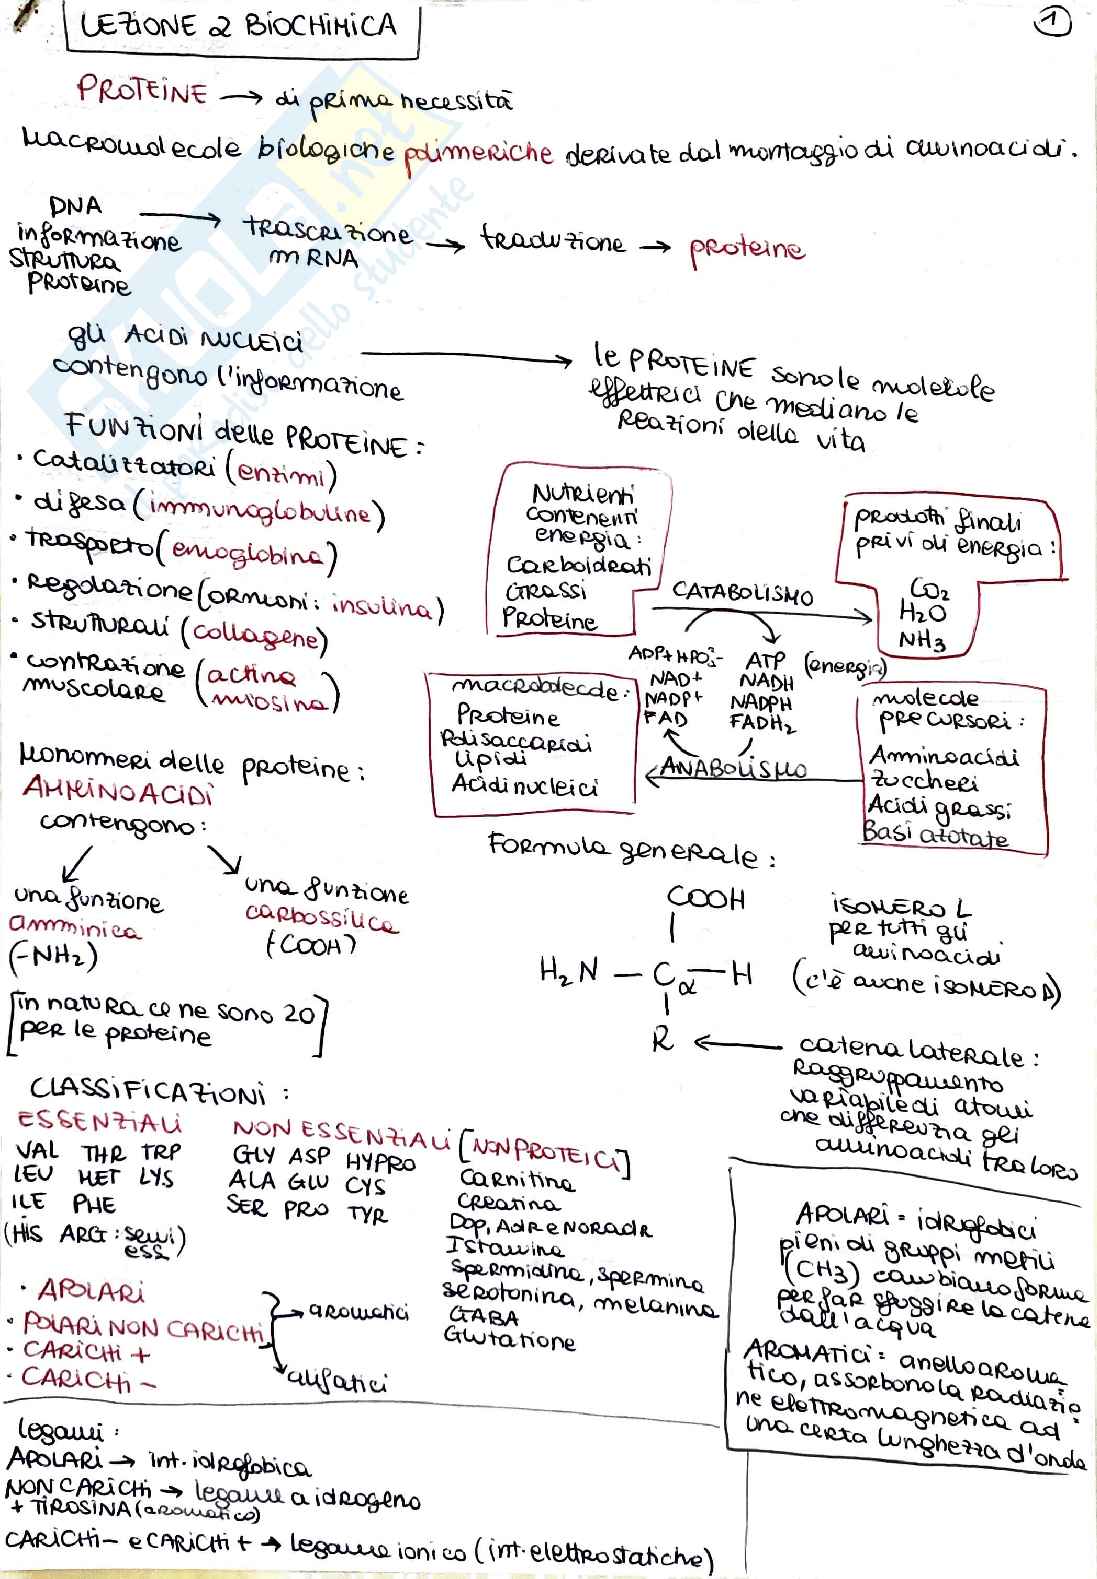 LEZIONE 2 BIOCHIMICA
1
PROTEINE → di prima necessità
Macromolecole biologiche polimeriche derivate dal montaggio di amminoacidi.
DNA
informazione
struttura
proteine
→ trascrizione
mRNA
→ traduzione → proteine
gli ACIDI NUCLEICI
contengono l'informazione
→ le PROTEINE sono le molecole
effettrici che mediano le
reazioni della vita
FUNZIONI delle PROTEINE:
• catalizzatori (enzimi)
• difesa (immunoglobuline)
• trasporto (emoglobina)
• regolazione (ormoni: insulina)
• strutturali (collagene)
• contrazione (actina
muscolare miosina)
Nutrienti
contenenti
energia:
carboidrati
Grassi
Proteine
CATABOLISMO
prodotti finali
privi di energia:
CO2
H2O
NH3
ADP+HPO4 2-
NAD+
NADP+
FAD
ATP (energia)
NADH
NADPH
FADH2
macromolecole:
Proteine
Polisaccaridi
Lipidi
Acidi nucleici
ANABOLISMO
molecole
precursori:
Amminoacidi
zuccheri
Acidi grassi
Basi azotate
Monomeri delle proteine:
AMMINOACIDI
contengono:
una funzione
amminica
(-NH2)
una funzione
carbossilica
(-COOH)
[in natura ce ne sono 20
per le proteine]
Formula generale:
COOH
H2N — Cα — H
R ←
ISOMERO L
per tutti gli
amminoacidi
(c'è anche ISOMERO D)
catena laterale:
raggruppamento
variabile di atomi
che differenzia gli
amminoacidi tra loro
CLASSIFICAZIONI:
ESSENZIALI
VAL THR TRP
LEU MET LYS
ILE PHE
(HIS ARG: semi
ess)
NON ESSENZIALI
GLY ASP HYPRO
ALA GLU CYS
SER PRO TYR
[NON PROTEICI]
Carnitina
Creatina
Dop, Adr e NORADR
Istamina
Spermidina, spermina
serotonina, melanina
GABA
Glutatione
• APOLARI
• POLARI NON CARICHI
• CARICHI +
• CARICHI -
→ aromatici
→ alifatici
APOLARI = idrofobici
pieni di gruppi metili
(CH3) cambiano forma
per far sfuggire la catena
dall'acqua
AROMATICI = anello aroma
tico, assorbono la radiazio
ne elettromagnetica ad
una certa lunghezza d'onda
Legami:
APOLARI → int. idrofobica
NON CARICHI → legame a idrogeno
+ TIROSINA (aromatico)
CARICHI - e CARICHI + → legame ionico (int. elettrostatiche)
SKUOLA.net
dello studente